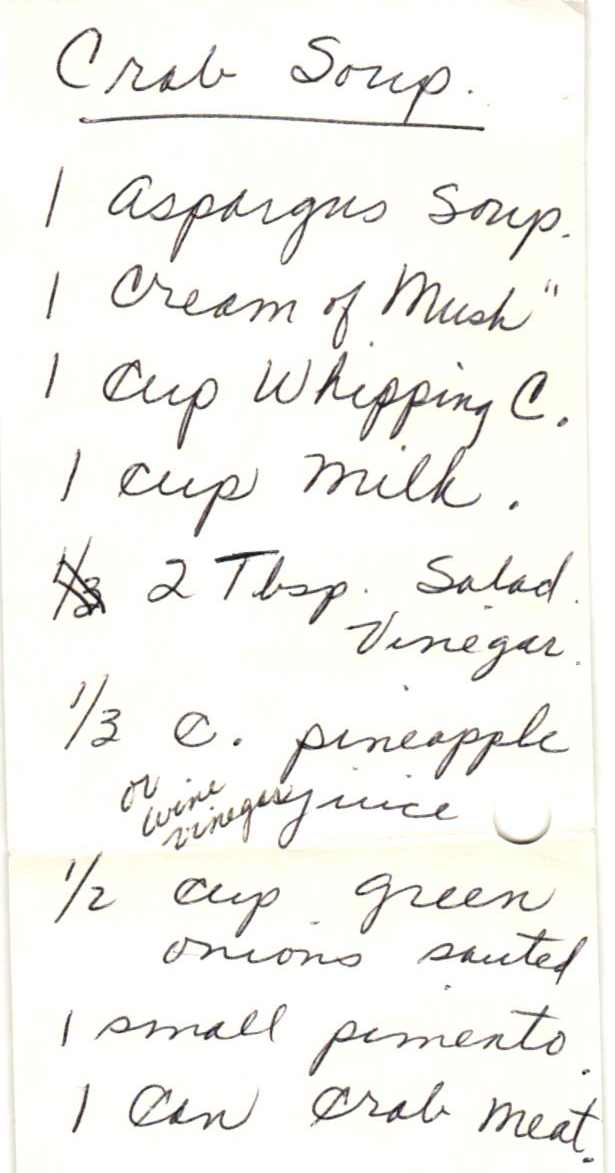 Crab Soup.
1 Aspargus Soup.
1 Cream of Mush "
1 Cup Whipping C.
1 cup Milk.
1/3 2 Tbsp. Salad
Vinegar.
1/3 C. pineapple
juice
or
wine
vinegar
1/2 cup green
onions sauted
1 small pimento.
1 Can Crab Meat.